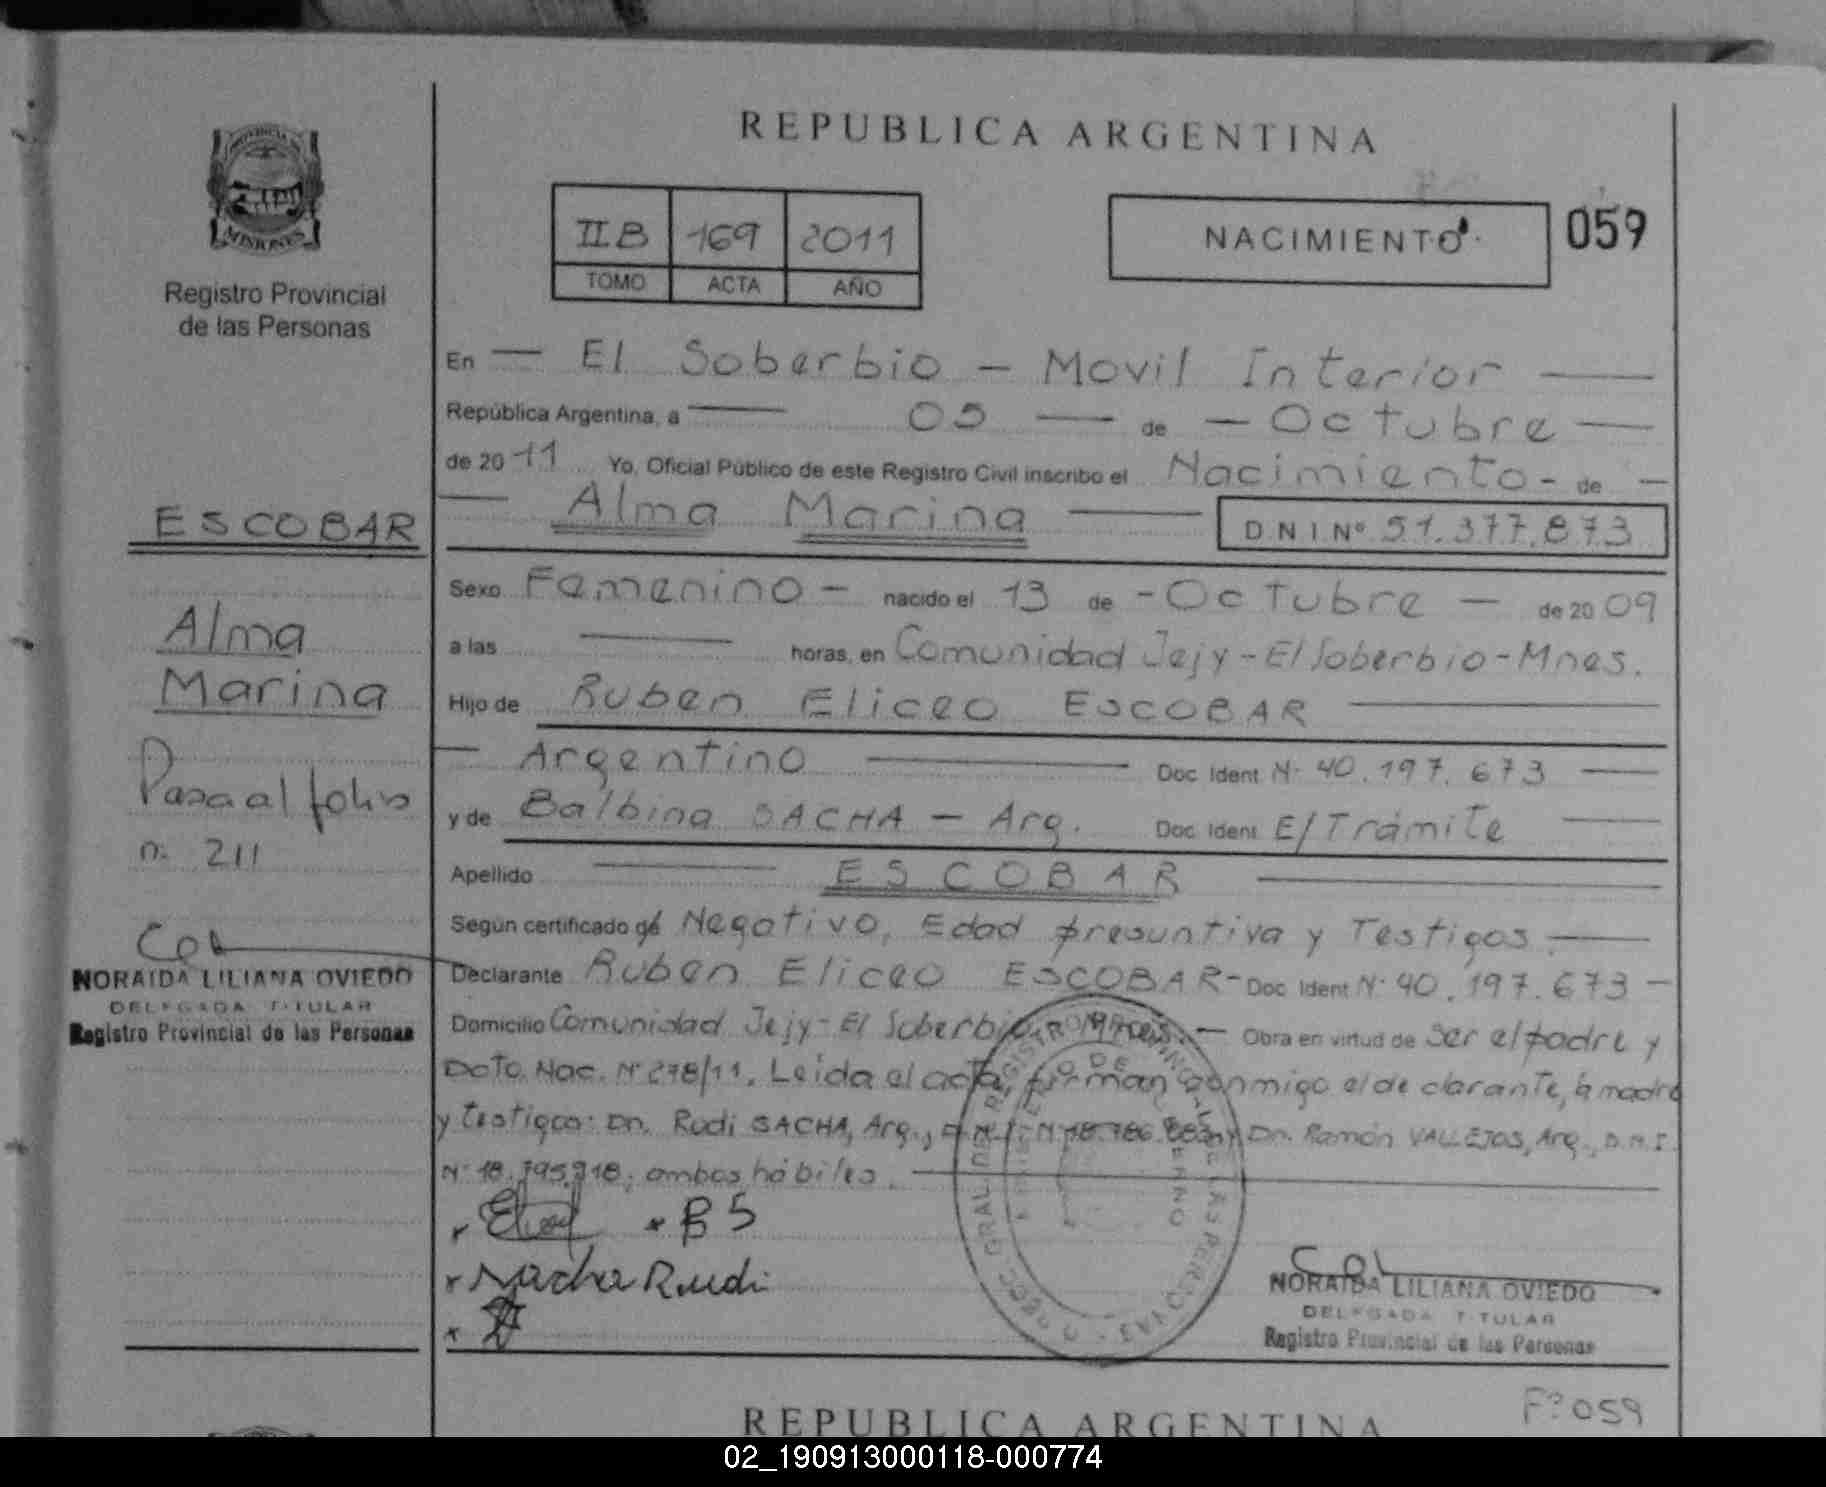 REPUBLICA ARGENTINA
PROVINCIA
MISIONES
Registro Provincial
de las Personas
II B 169 2011
TOMO ACTA AÑO
NACIMIENTO 059
En — El Soberbio — Movil Interior —
República Argentina, a — 05 — de — Octubre —
de 20 11 Yo, Oficial Público de este Registro Civil inscribo el Nacimiento - de —
— Alma Marina — D.N.I. Nº 51.377.873
Sexo Femenino — nacido el 13 de - Octubre — de 20 09
a las — horas, en Comunidad Jejy - El Soberbio - Mnes.
Hijo de Ruben Eliceo ESCOBAR —
— Argentino — Doc. Ident. Nº 40.197.673 —
y de Balbina SACHA — Arg. Doc. Ident. E/Trámite —
Apellido — ESCOBAR —
Según certificado de Negativo, Edad presuntiva y Testigos. —
Declarante Ruben Eliceo ESCOBAR - Doc. Ident. Nº 40.197.673 —
Domicilio Comunidad Jejy - El Soberbio - Mnes. — Obra en virtud de ser el padre y
Dcto. Nac. Nº 278/11. Leida el acta, firman conmigo el declarante, la madre
y testigos: Dn. Rudi SACHA, Arg., D.N.I. Nº y Dn. Ramón VALLEJOS, Arg., D.N.I.
Nº 18.795.918; ambos hábiles. —
x x B S
x Sacha Rudi
x
NORAIDA LILIANA OVIEDO
DELEGADA TITULAR
Registro Provincial de las Personas
ESCOBAR
Alma
Marina
Pasa al folio
n: 211
NORAIDA LILIANA OVIEDO
DELEGADA TITULAR
Registro Provincial de las Personas
Fº 059
REPUBLICA ARGENTINA
02_190913000118-000774